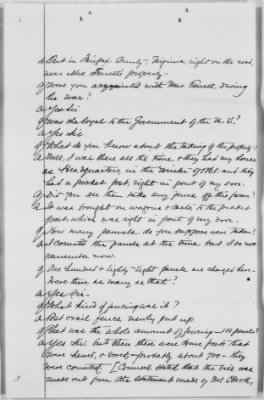 A But in Fairfax County, Virginia, right on the road,
near Mrs Terrett's property.
Q Were you acquainted with Mrs. Terrett, during
the war?
A Yes Sir.
Q Was she loyal to the Government of the U.S.?
A Yes Sir
Q What do you know about the taking of the property
A Well, I was there all the time, & they had my house
as Headquarters, in the Winter of 1861. and they
had a picket post, right in front of my door.
Q Did you see them take any fence off this farm?
A It was brought on wagons & carts, to the picket
post, which was right in front of my door.
Q How many pannels do you suppose were taken?
A I counted the panels at the time, but I do not
remember now.
Q One Hundred & Eighty-Eight panels are charged here.
Were there as many as that?
A Yes Sir.
Q What kind of fencing was it?
A Post & rail fence nearly put up.
Q That was the whole amount of fencing—188 panels?
A Yes Sir but then there were some posts that
were hewed, & bored—probably about 700—they
were counted. [Counsel stated that the bill was
made out from the statement made by Mr.